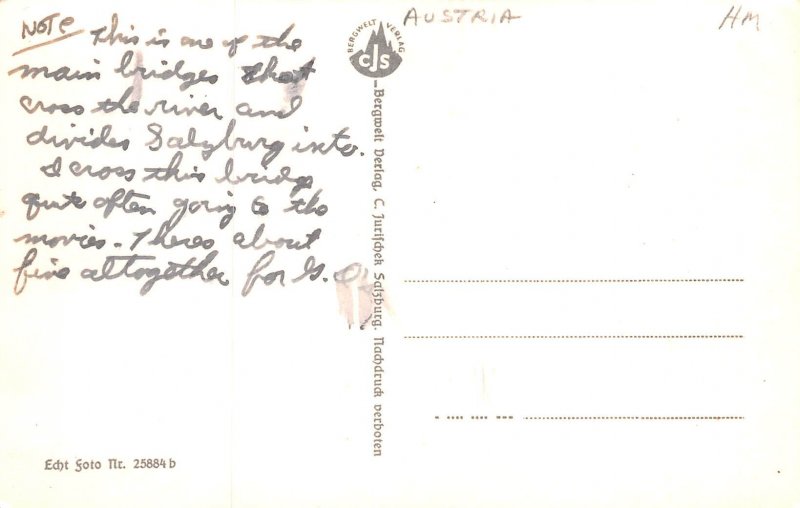 NOTE This is one of the
main bridges that
cross the river and
divides Salzburg into.
I cross this bridge
quite often going to the
movies. Theres about
five altogether for G.
AUSTRIA
HM
BERGWELT VERLAG
CJS
Bergwelt Verlag, C. Jurischek Salzburg. Nachdruck verboten
Echt Foto Nr. 25884 b